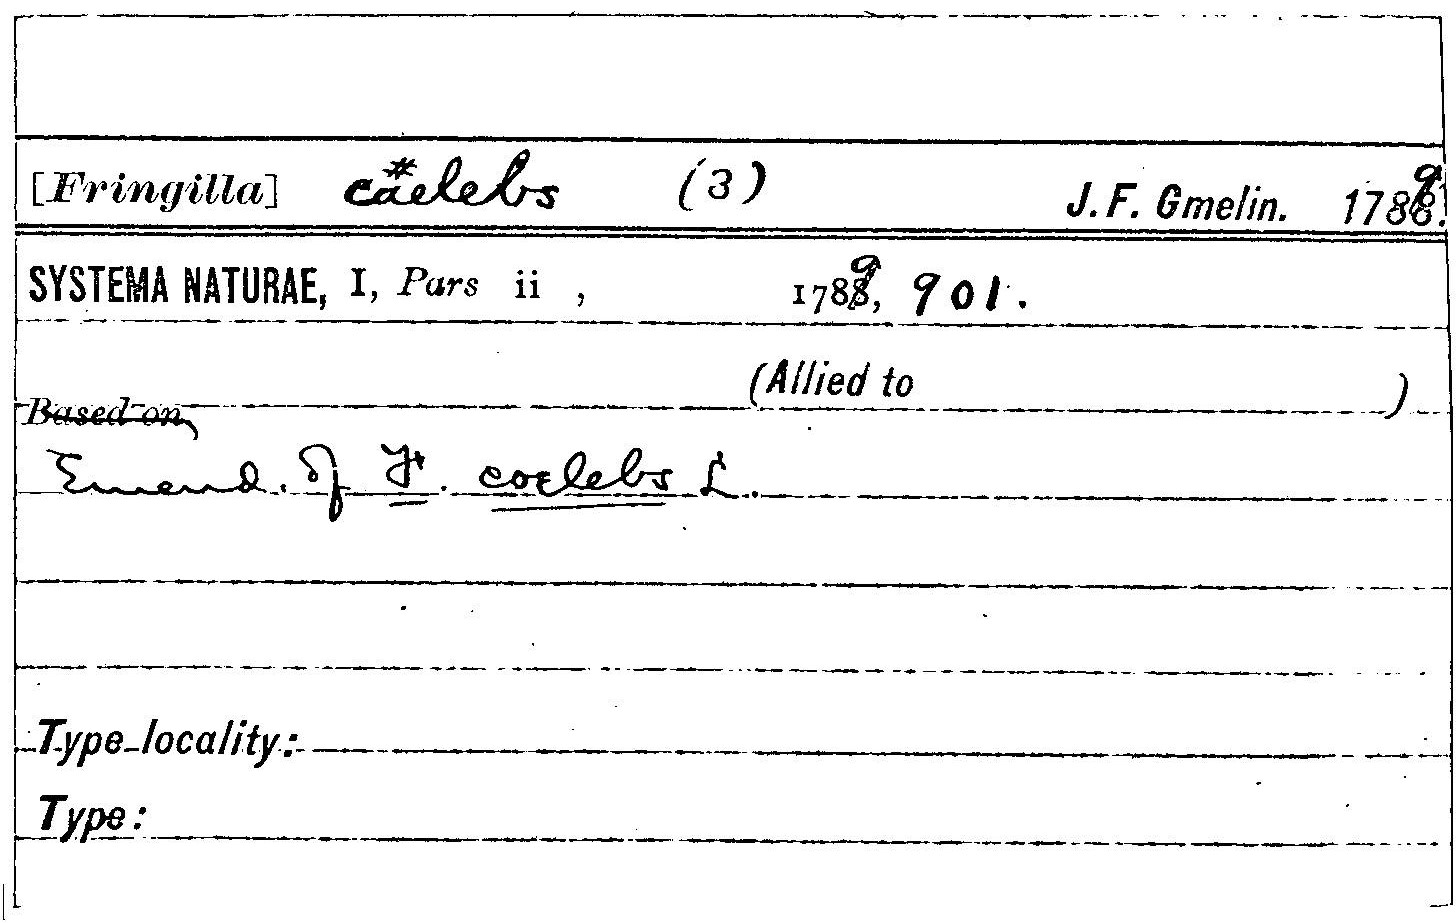 [Fringilla] caelebs (3) J. F. Gmelin. 1789.
SYSTEMA NATURAE, I, Pars ii , 1789, 901.
(Allied to )
Based on
Emend. of F. coelebs L.
Type locality:
Type: